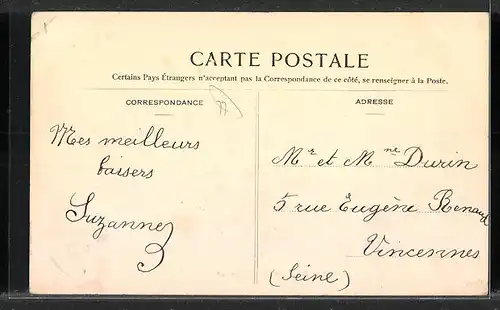 CARTE POSTALE
Certains Pays Étrangers n'acceptant pas la Correspondance de ce côté, se renseigner à la Poste.
CORRESPONDANCE
77
Mes meilleurs
baisers
Suzanne
ADRESSE
Mr et Mme Durin
5 rue Eugène Renaud
Vincennes
(Seine)